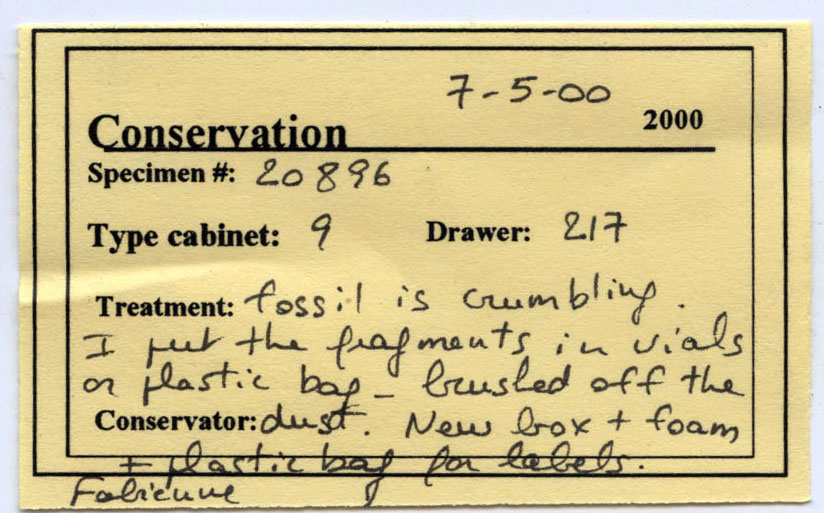 7-5-00
Conservation 2000
Specimen #: 20896
Type cabinet: 9 Drawer: 217
Treatment: fossil is crumbling.
I put the fragments in vials
or plastic bag - brushed off the
Conservator: dust. New box + foam
+ plastic bag for labels.
Fabienne